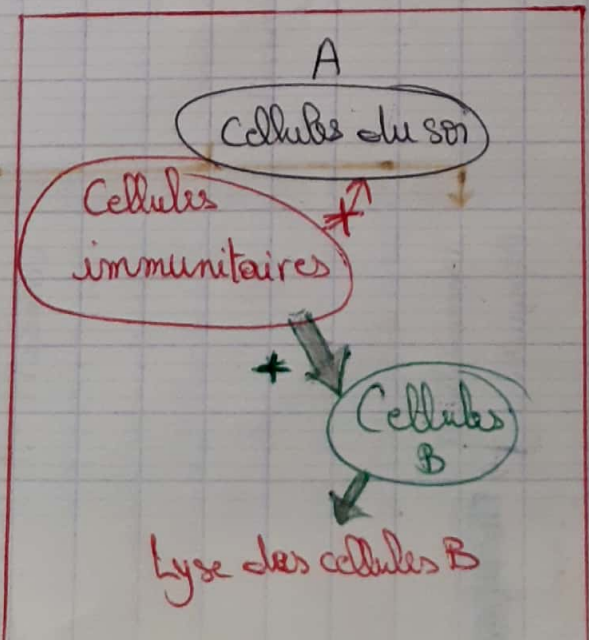 A
Cellules du soi
Cellules
immunitaires
Cellules
B
Lyse des cellules B